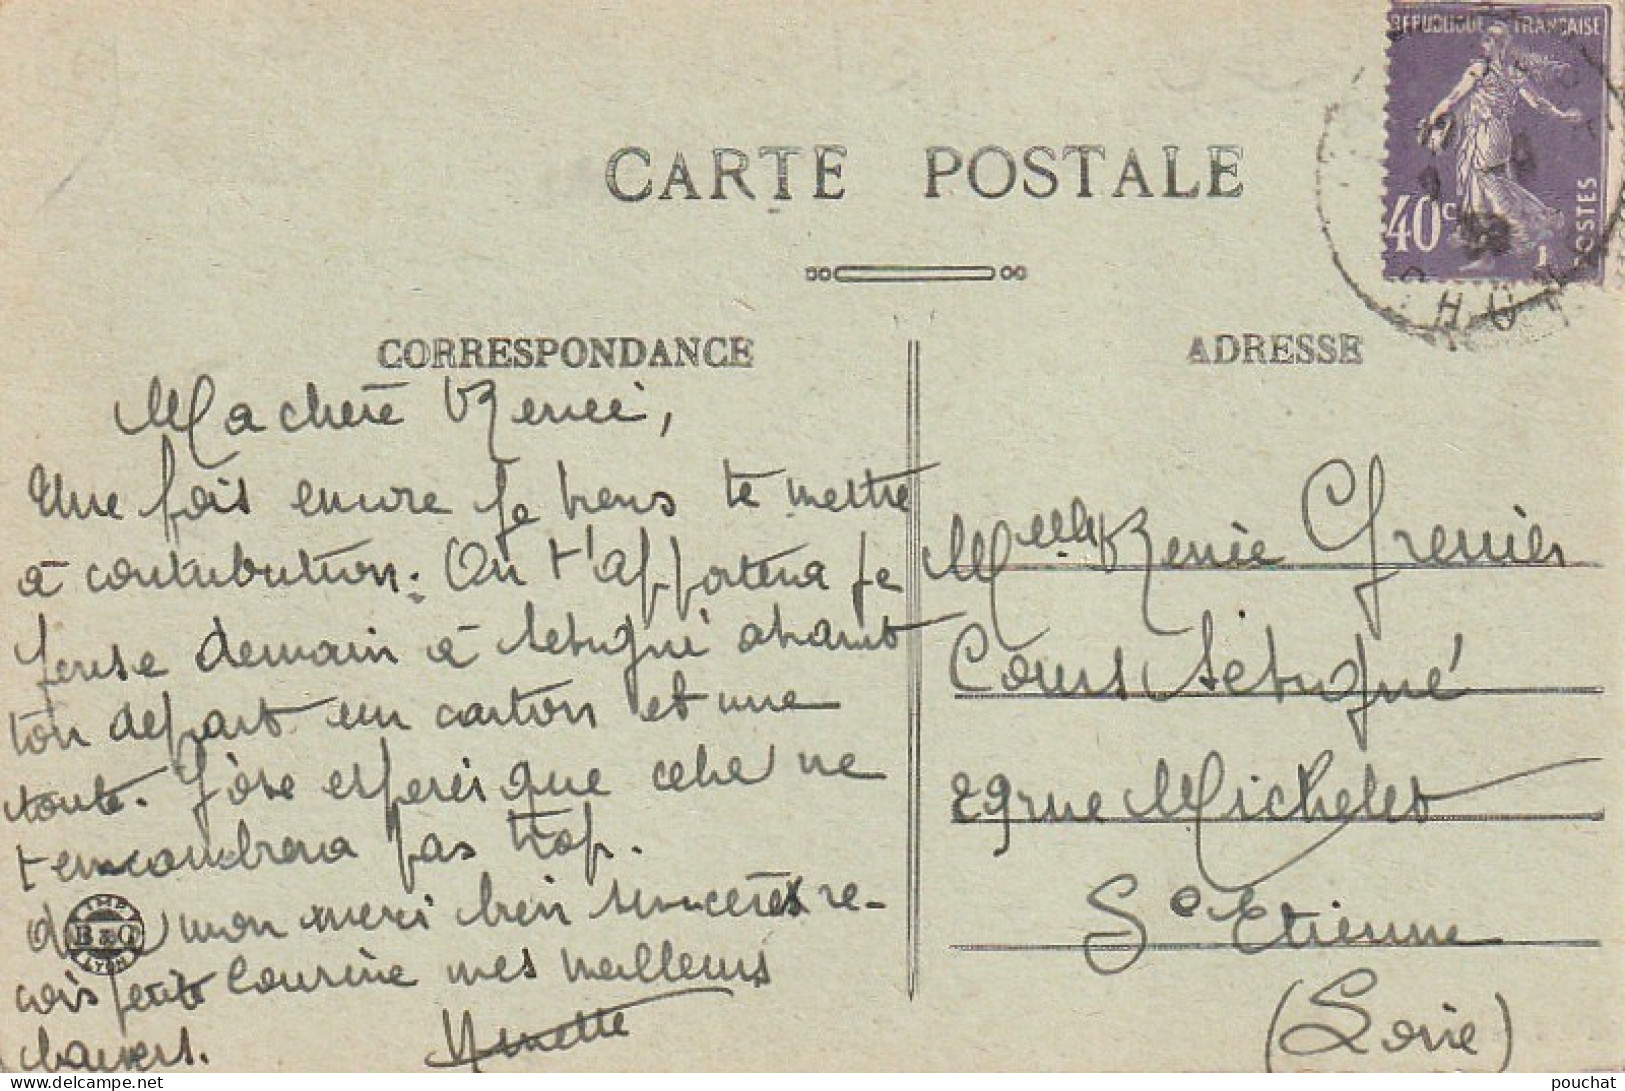 CARTE POSTALE
REPUBLIQUE FRANÇAISE
40c
POSTES
RHÔN
CORRESPONDANCE
Ma chère Renée,
Une fois encore je viens te mettre
à contribution. On t'apportera je
pense demain à Sévigné avant
ton départ un carton et une
toute. J'ose espérer que cela ne
t'encombrera pas trop.
mon merci bien sincère re-
çois petite cousine mes meilleurs
baisers. Ninette
IMP.
B & G
LYON
ADRESSE
Melle Renée Grenier
Cours Sévigné
29 rue Michelet
St Etienne
(Loire)
pouchat